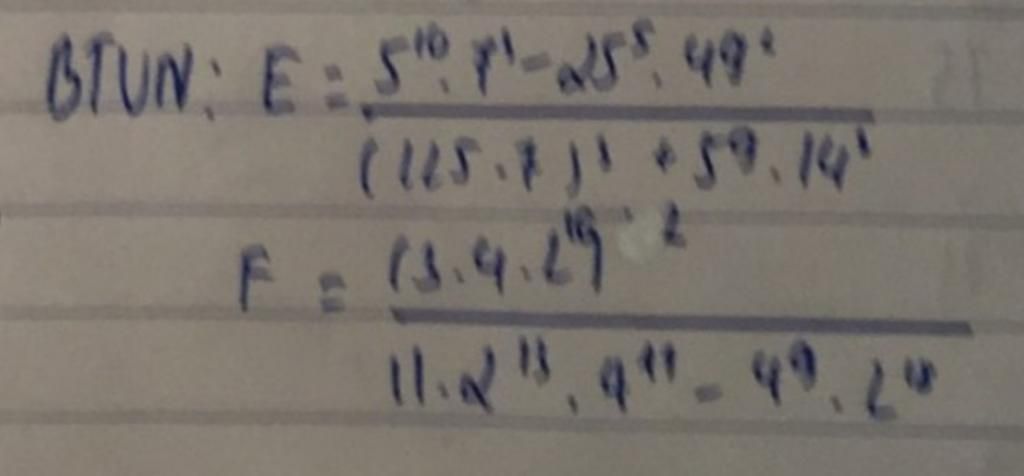 BTVN: E = 5¹⁰.7³ - 25⁵.49²
(125.7)³ + 5⁹.14³
F = (3.4.2¹⁶)²
11.2¹³.4¹¹ - 4⁹.2¹⁸